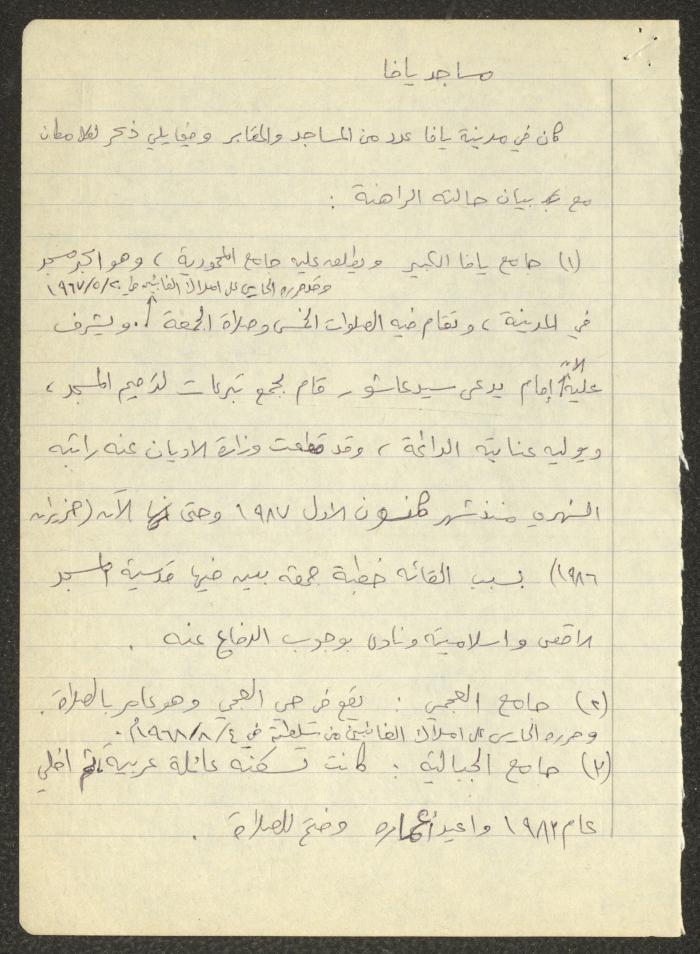 مساجد يافا
كان في مدينة يافا عدد من المساجد والمقابر وفيما يلي ذكر لهلا مكان
مع بيان حالته الراهنة :
(١) جامع يافا الكبير ويطلق عليه جامع المحمودية ، وهو اكبر مسجد
وقد حرره الحارس على املاك الغائبين في ١٩٦٧/٥/٢
في المدينة ، وتقام فيه الصلوات الخمس وصلاة الجمعة . ويشرف
الآن
عليه إمام يدعى سيد عاشور قام بجمع تبرعات لترميم المسجد ،
ويوليه عنايته الدائمة ، وقد قطعت وزارة الاديان عنه راتبه
الشهري منذ شهر كانون الاول ١٩٨٧ وحتى الآن (حزيران
١٩٨٦) بسبب القائه خطبة جمعة بين فيها قدسية المسجد
الاقصى واسلاميته ونادى بوجوب الدفاع عنه .
(٢) جامع العجمي : يقع في حي العجمي وهو عامر بالصلاة .
وحرره الحارس على املاك الغائبين من سلطته في ١٩٦٨/٨/٤م .
(٣) جامع الجبالية : كانت تسكنه عائلة عربية ثم اخلي
عام ١٩٨٢ واعيد إعماره وفتح للصلاة .